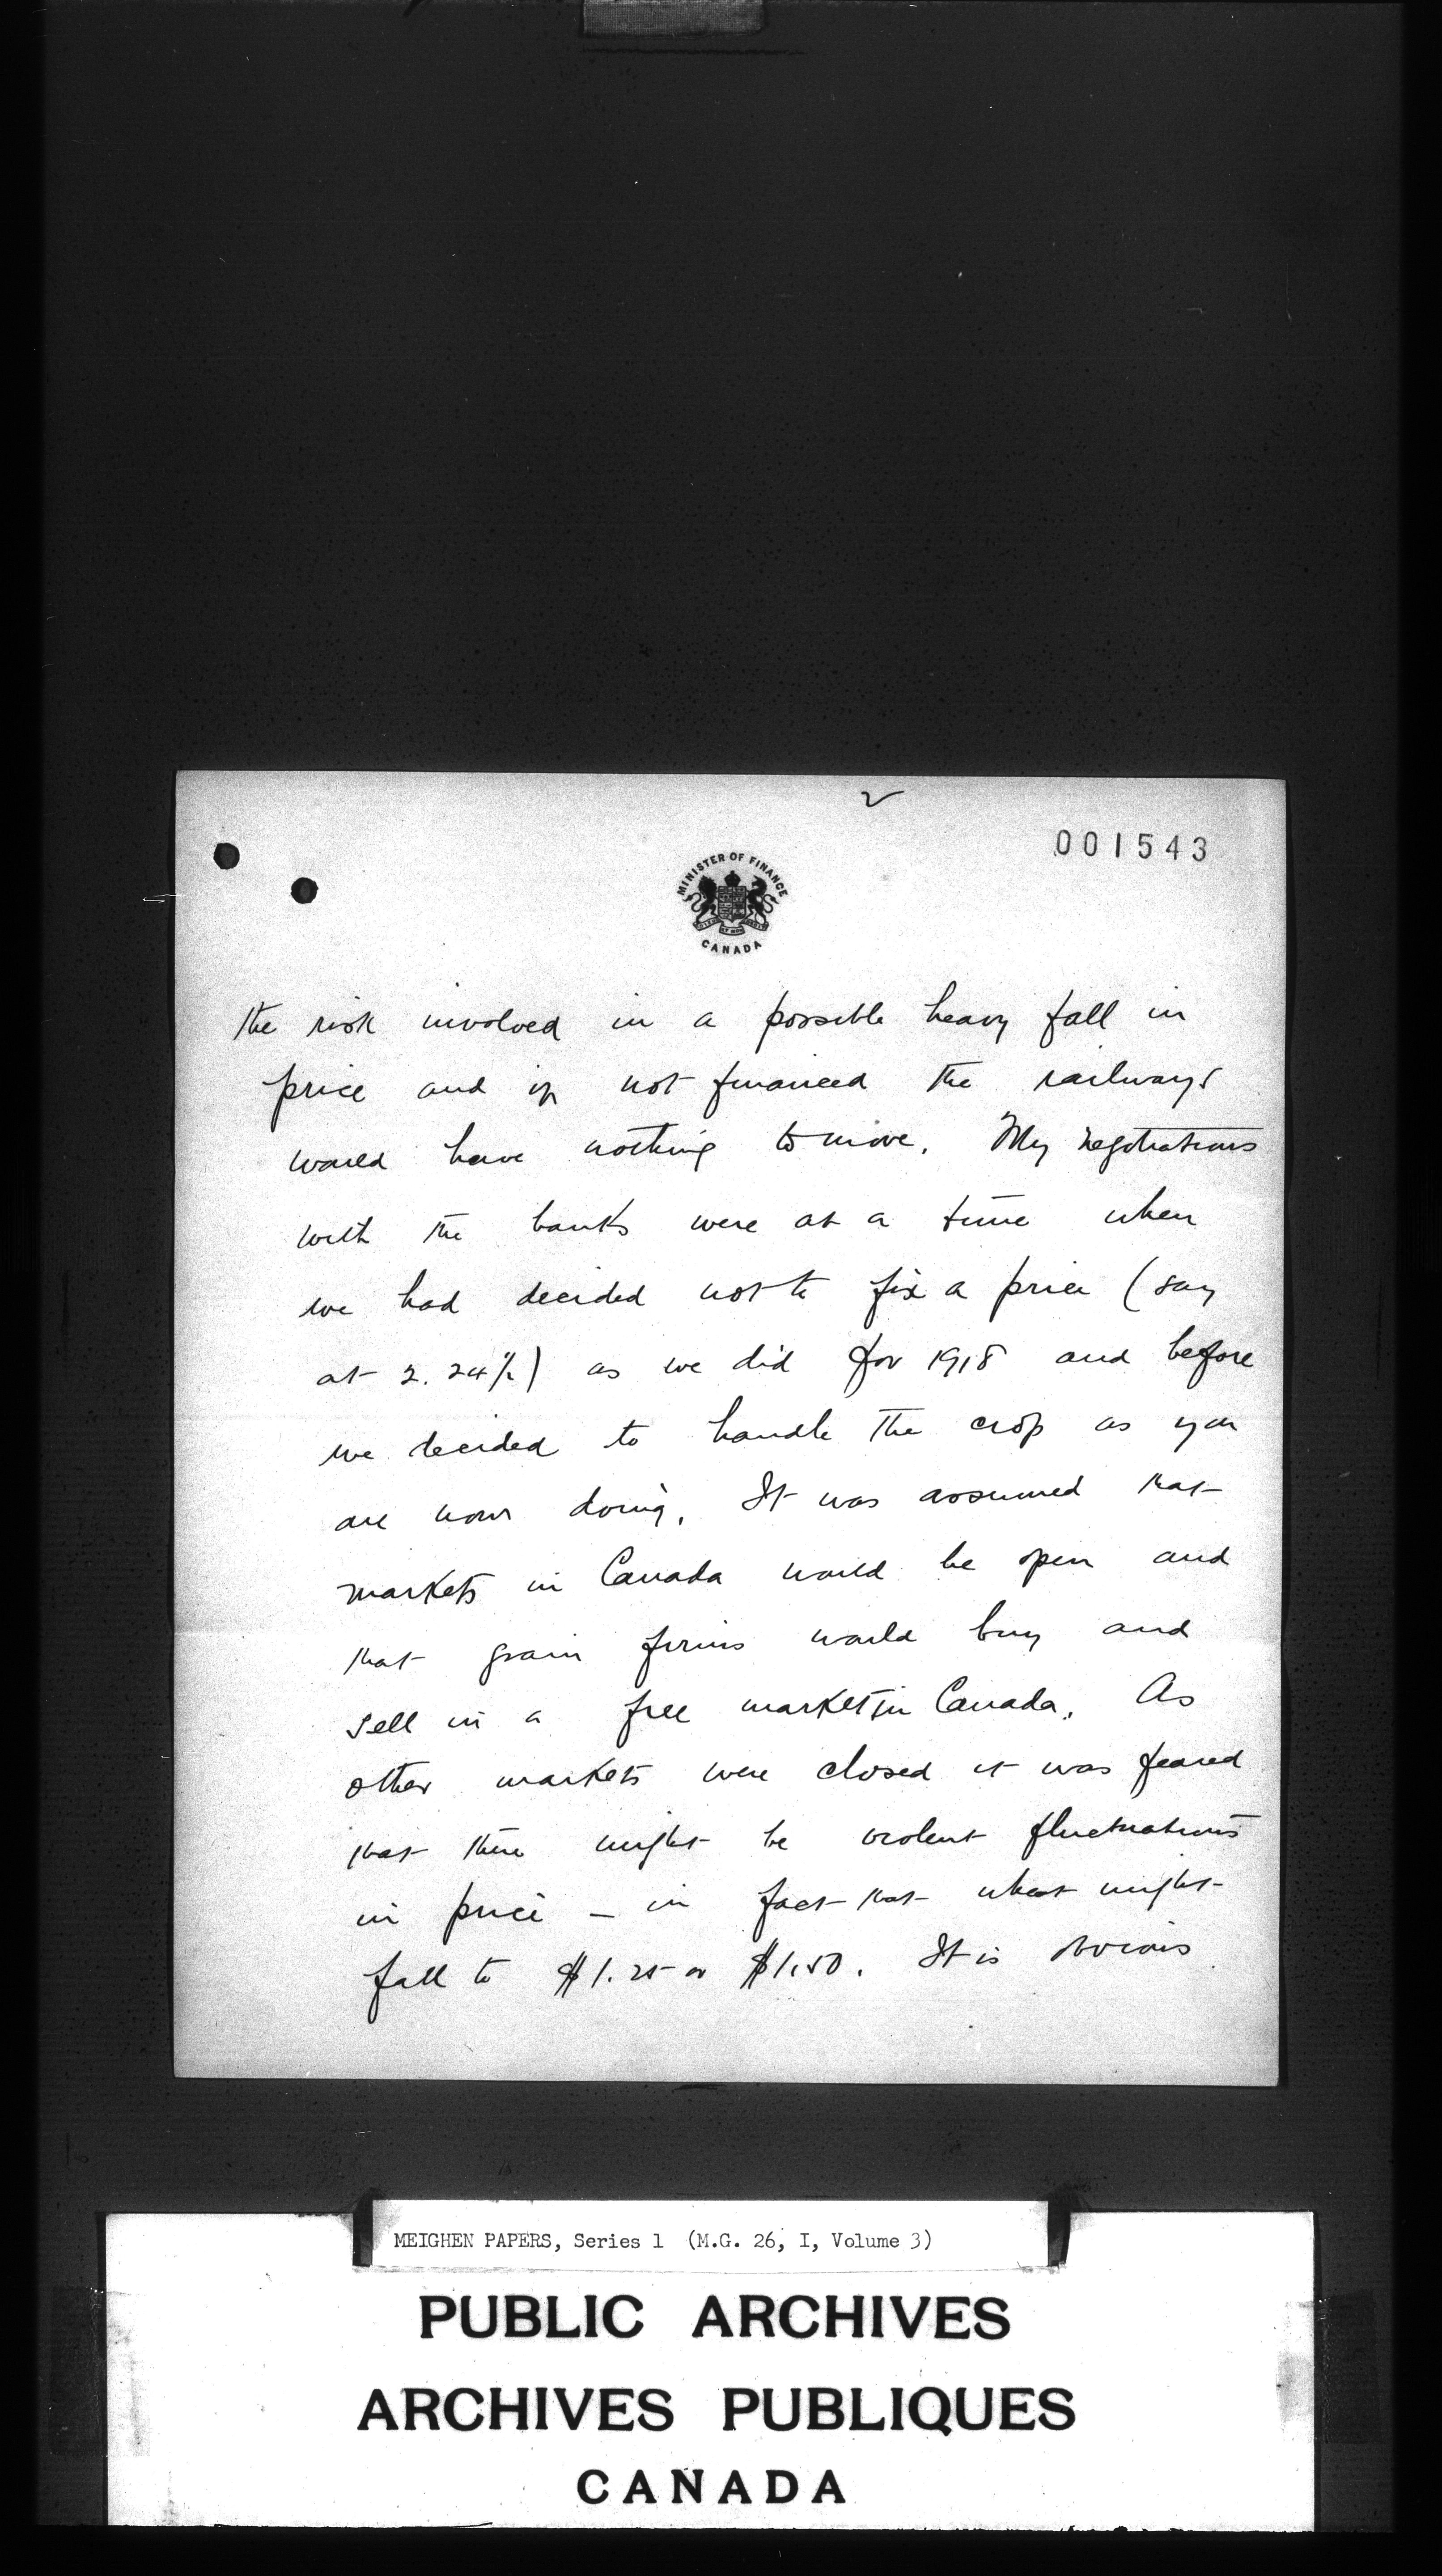 2
001543
MINISTER OF FINANCE
CANADA
the risk involved in a possible heavy fall in
price and if not financed the railways
would have nothing to move. My negotiations
with the banks were at a time when
we had decided not to fix a price (say
at 2.24½) as we did for 1918 and before
we decided to handle the crop as you
are now doing. It was assumed that
markets in Canada would be open and
that grain firms would buy and
sell in a free market in Canada. As
other markets were closed it was feared
that there might be violent fluctuations
in price – in fact that wheat might
fall to $1.25 or $1.50. It is obvious
MEIGHEN PAPERS, Series 1 (M.G. 26, I, Volume 3)
PUBLIC ARCHIVES
ARCHIVES PUBLIQUES
CANADA